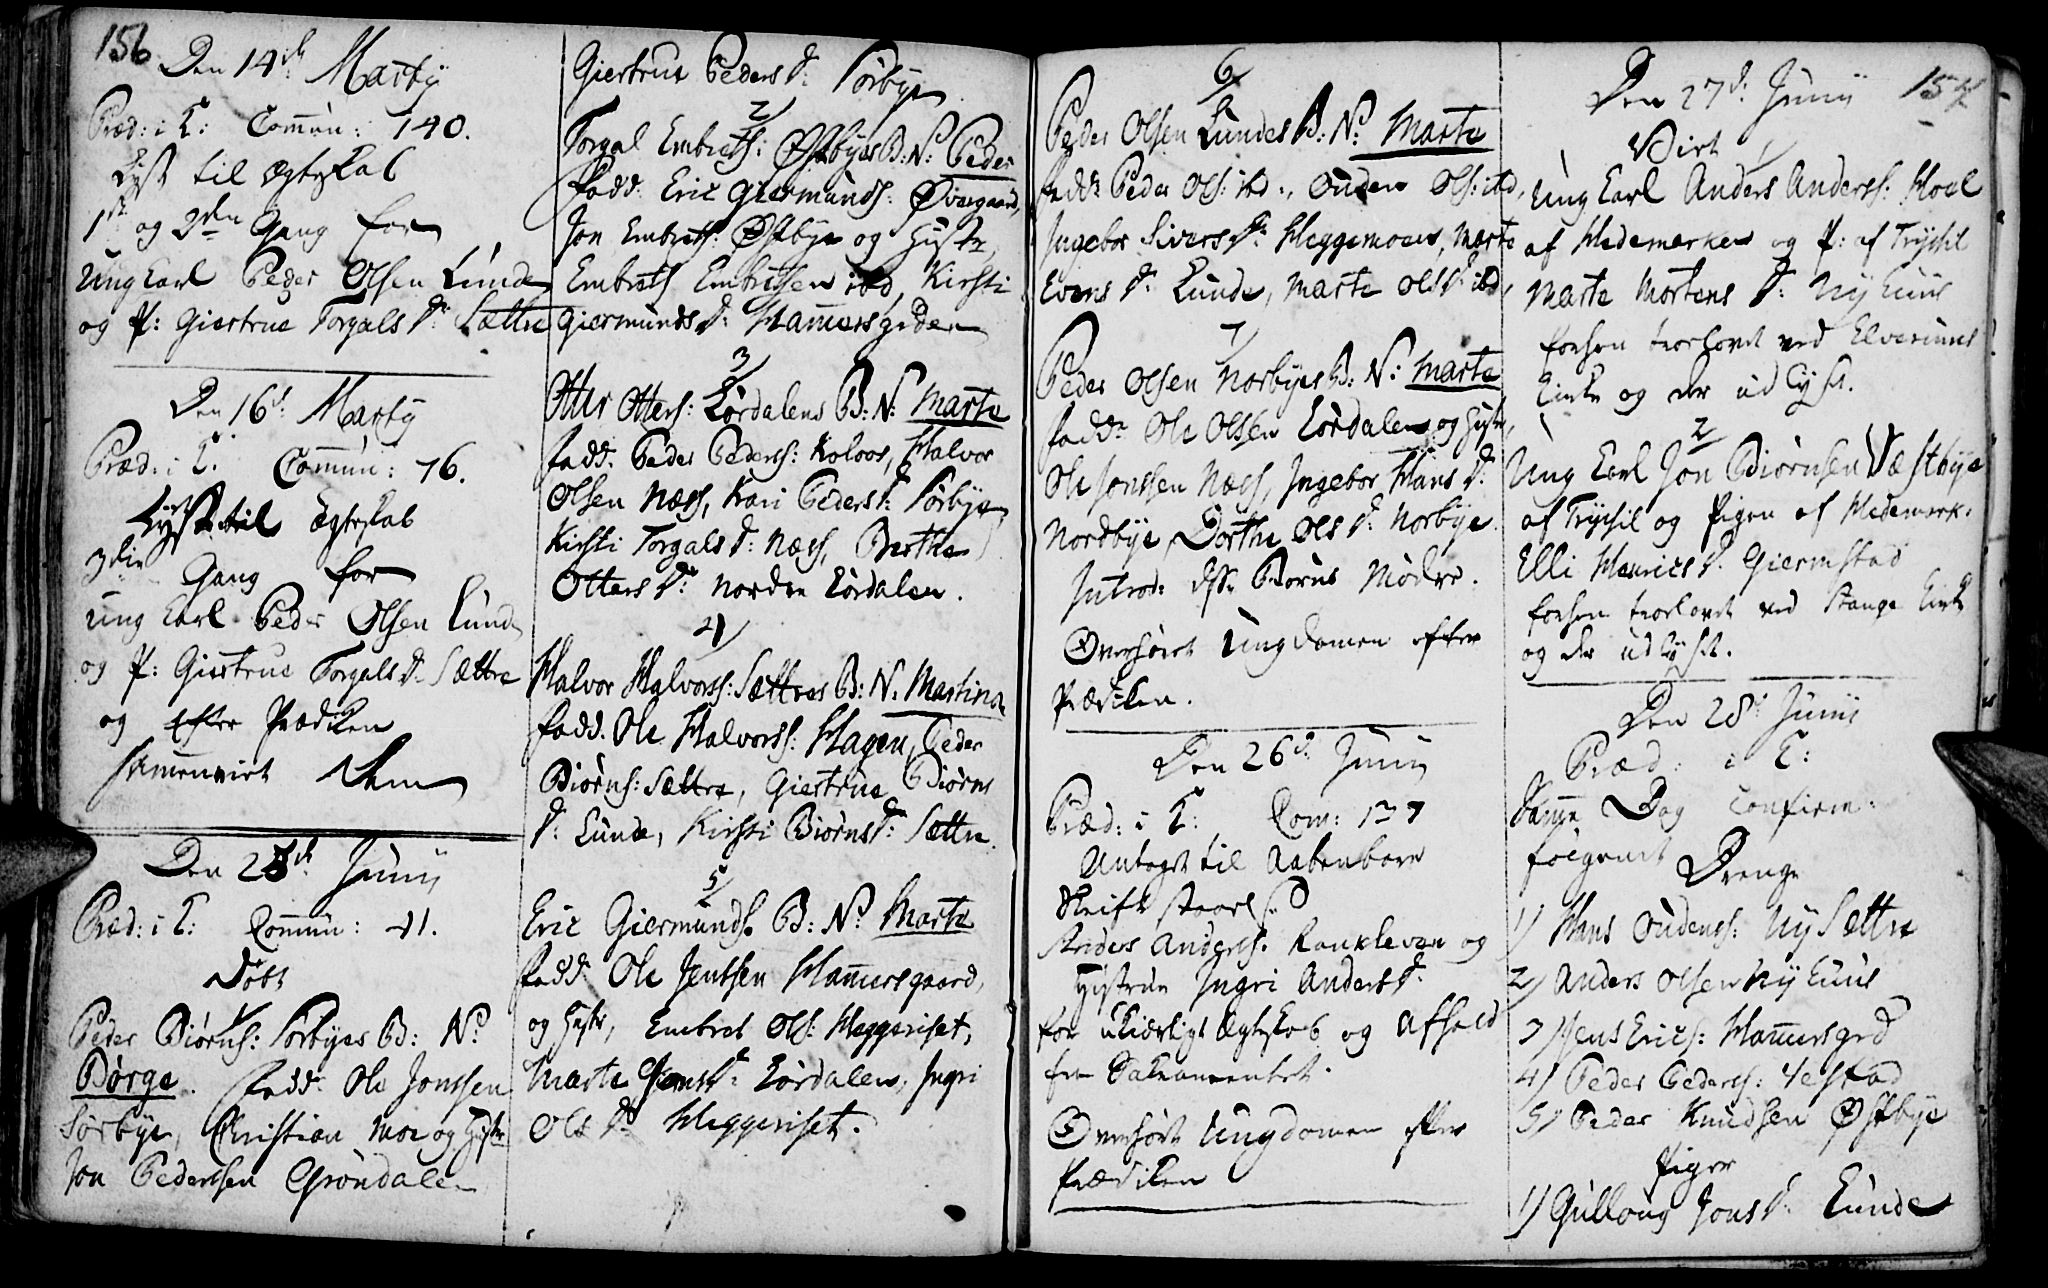 156
Den 14de Martij
Præd: i T: Com̄un: 140.
Lyst til Ægteskab
1ste og 2den Gang for
Ung Carl Peder Olsen Lunde
og P: Giertrue Torgals Dr Sættre
Den 16de Martij
Præd: i T: Com̄un: 76.
Lyst til Ægteskab
3die Gang for
Ung Carl Peder Olsen Lunde
og P: Giertrue Torgals Dr Sættre
og Efter Prædiken
sammenviet dem
Den 25de Junij
Præd: i T: Com̄un: 41.
Døbt
1/
Peder Biörnss: Sörbyes B: N:
Börge. Fadd: Ole Jonssen
Sörbye, Christian Moe og Hustr
Jon Pederssen Gröndalen
Giertrue Peders Dr Sörbye
2/
Torgal Embretss: Östbyes B: N: Peder
Fadd: Eric Giermunds: Övergaard,
Jon Embretss: Östbye og Hustr,
Embreth Embretsen ibd, Kirsti
Giermunds Dr Ham̄ersgrden
3/
Otter Otterss: Lördalens B: N: Marte
Fadd: Peder Pederss: Koloos, Halvor
Olsen Næss, Kari Peders Dr Sörbye
Kirsti Torgals Dr Næss, Berthe
Otters Dr Nordre Lördalen.
4/
Halvor Halvorss: Sættres B: N: Martina
Fadd. Ole Halvorss: Hagen, Peder
Biörnss: Sættre, Giertrue Biörns
Dr Lunde, Kirsti Biörns Dr Sættre.
5/
Eric Giermunds. B: N: Marte
Fadd. Ole Jenssen Ham̄ersgaard,
og Hustr, Embret Ols: Heggeriset,
Marte Jens Dr Lördalen, Ingri
Ols Dr Heggeriset.
6/
Peder Olsen Lundes B: N: Marte
Fadd: Peder Ols: ibd:, Ouden Ols: ibd,
Ingebor Sivers Dr Heggemoen, Marte
Evens Dr Lunde, Marte Ols Dr ibd,
7/
Peder Olsen Norbyes B: N: Marte
Fadd: Ole Olsen Lördalen og Hustr,
Ole Jonssen Næss, Ingebor Hans Dr
Nordbye, Dorthe Ols Dr Norbye.
Introd: dsse Börns Mödre.
Overhört Ungdomen efter
Prædiken.
Den 26de Junij
Præd: i T: Com: 137
Antaget til Aabenbare
Skrifte
Anders Anderss: Rankleven og
Hustrue Ingri Anders Dr
for ukierligt Ægteskab og Afhold
fra Sakramentet.
Overhört Ungdomen efter
Prædiken
157
Den 27de Junij
Viet
1/
Ung Carl Anders Anderss: Hoel
af Hedemarken og P: af Trysil
Marte Mortens Dr Nyhuus
forhen trolovet ved Elverums
Kirke og der udlyst.
2/
Ung Carl Jon Biörnsen Væstbye
af Trysil og Pigen af Hedemark:
Elli Henrics Dr Giermstad
forhen trolovet ved Stange Kirk
og der udlyst.
Den 28de Junij
Præd: i T:
Sam̄e Dag Confirm:
fölgende
Drenge
1) Hans Oudenss: NySættre
2) Anders Olsen Nyhuus
3) Jens Erics: Ham̄ersgrd
4) Peder Pederss: Jestad
5) Peder Knudsen Östbye
Piger
1) Gulloug Jons Dr Lunde